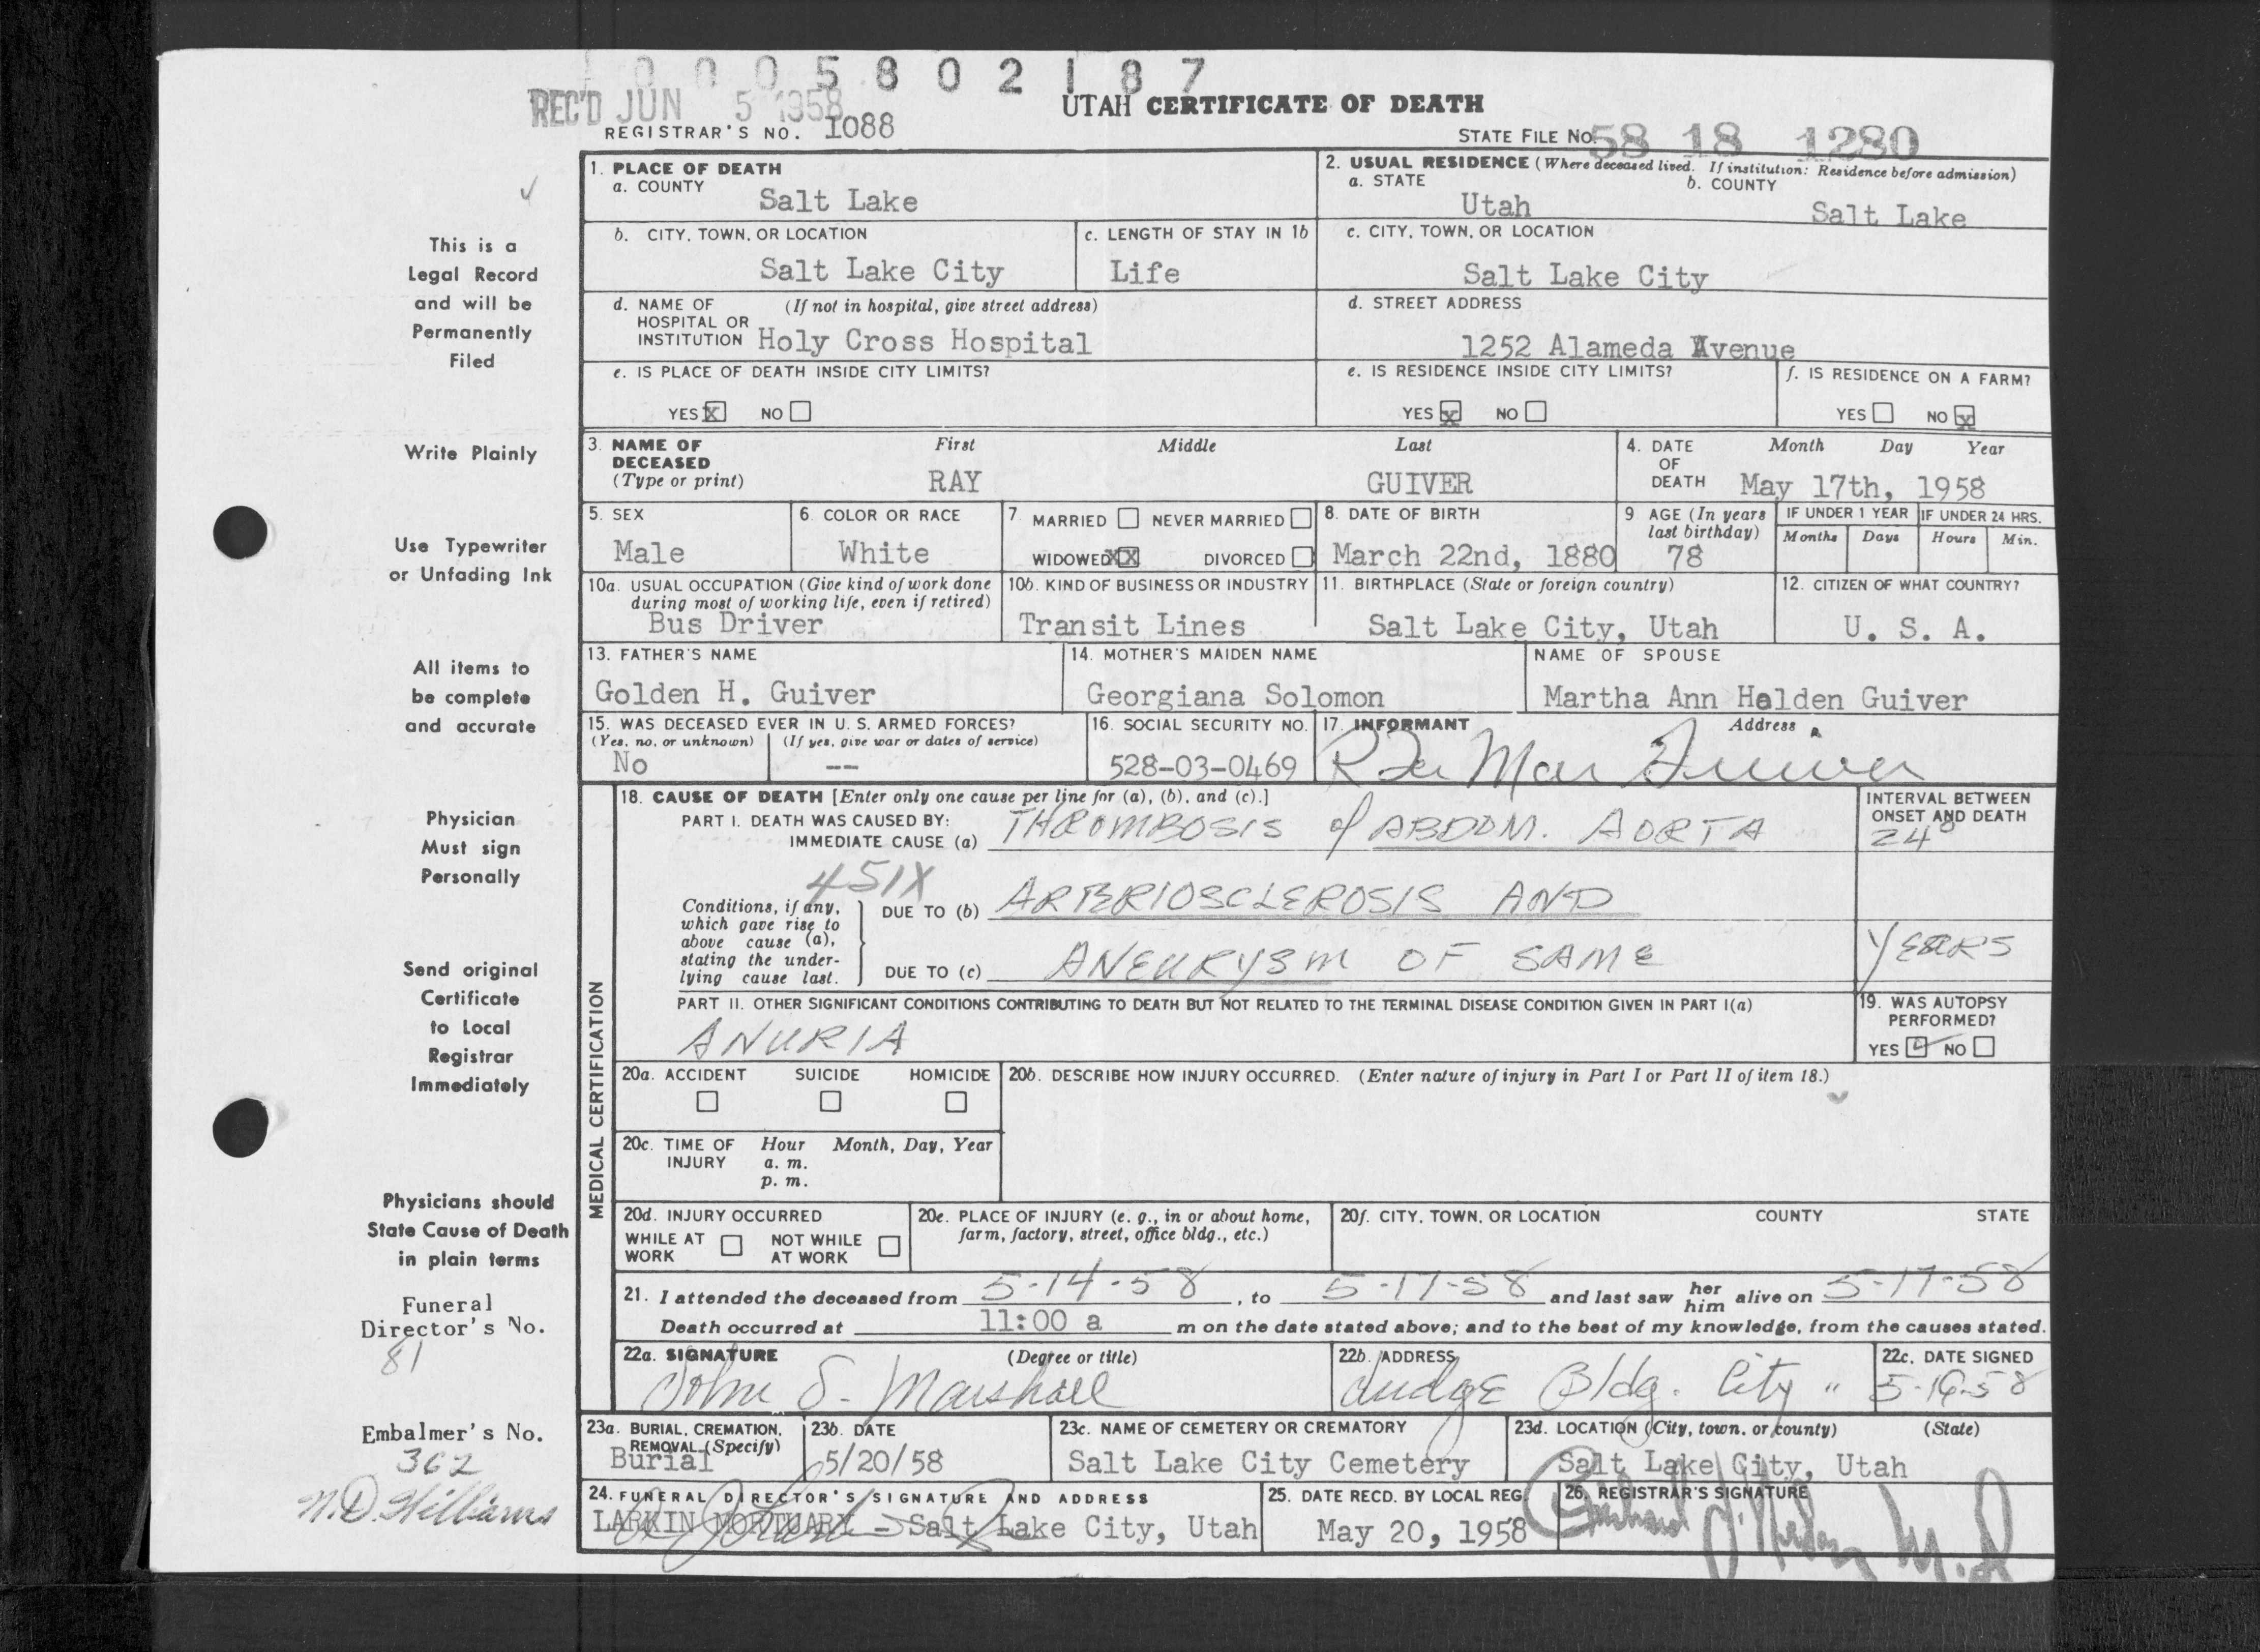 1 0 0 0 5 8 0 2 1 8 7
REC'D JUN 5 1958
UTAH CERTIFICATE OF DEATH
REGISTRAR'S NO. 1088
STATE FILE NO. 58 18 1280
1. PLACE OF DEATH
a. COUNTY
Salt Lake
2. USUAL RESIDENCE (Where deceased lived. If institution: Residence before admission)
a. STATE b. COUNTY
Utah Salt Lake
b. CITY, TOWN, OR LOCATION
Salt Lake City
c. LENGTH OF STAY IN 1b
Life
c. CITY, TOWN, OR LOCATION
Salt Lake City
d. NAME OF (If not in hospital, give street address)
HOSPITAL OR
INSTITUTION Holy Cross Hospital
d. STREET ADDRESS
1252 Alameda Avenue
e. IS PLACE OF DEATH INSIDE CITY LIMITS?
YES X NO
e. IS RESIDENCE INSIDE CITY LIMITS?
YES X NO
f. IS RESIDENCE ON A FARM?
YES NO X
3. NAME OF First Middle Last
DECEASED
(Type or print) RAY GUIVER
4. DATE Month Day Year
OF
DEATH May 17th, 1958
5. SEX
Male
6. COLOR OR RACE
White
7. MARRIED NEVER MARRIED
WIDOWED XX DIVORCED
8. DATE OF BIRTH
March 22nd, 1880
9 AGE (In years
last birthday)
78
IF UNDER 1 YEAR
Months Days
IF UNDER 24 HRS.
Hours Min.
10a. USUAL OCCUPATION (Give kind of work done
during most of working life, even if retired)
Bus Driver
10b. KIND OF BUSINESS OR INDUSTRY
Transit Lines
11. BIRTHPLACE (State or foreign country)
Salt Lake City, Utah
12. CITIZEN OF WHAT COUNTRY?
U. S. A.
13. FATHER'S NAME
Golden H. Guiver
14. MOTHER'S MAIDEN NAME
Georgiana Solomon
NAME OF SPOUSE
Martha Ann Halden Guiver
15. WAS DECEASED EVER IN U. S. ARMED FORCES?
(Yes, no, or unknown) (If yes, give war or dates of service)
No --
16. SOCIAL SECURITY NO.
528-03-0469
17. INFORMANT Address
Guiver
MEDICAL CERTIFICATION
18. CAUSE OF DEATH [Enter only one cause per line for (a), (b), and (c).]
PART I. DEATH WAS CAUSED BY:
IMMEDIATE CAUSE (a) THROMBOSIS of ABDOM. AORTA
INTERVAL BETWEEN
ONSET AND DEATH
24°
451X
Conditions, if any,
which gave rise to
above cause (a),
stating the under-
lying cause last.
DUE TO (b) ARTERIOSCLEROSIS AND
DUE TO (c) ANEURYSM OF SAME
YEARS
PART II. OTHER SIGNIFICANT CONDITIONS CONTRIBUTING TO DEATH BUT NOT RELATED TO THE TERMINAL DISEASE CONDITION GIVEN IN PART I(a)
ANURIA
19. WAS AUTOPSY
PERFORMED?
YES NO
20a. ACCIDENT SUICIDE HOMICIDE
20b. DESCRIBE HOW INJURY OCCURRED. (Enter nature of injury in Part I or Part II of item 18.)
20c. TIME OF Hour Month, Day, Year
INJURY a. m.
p. m.
20d. INJURY OCCURRED
WHILE AT NOT WHILE
WORK AT WORK
20e. PLACE OF INJURY (e. g., in or about home,
farm, factory, street, office bldg., etc.)
20f. CITY, TOWN, OR LOCATION COUNTY STATE
21. I attended the deceased from 5-14-58, to 5-17-58 and last saw her him alive on 5-17-58
Death occurred at 11:00 a m on the date stated above; and to the best of my knowledge, from the causes stated.
22a. SIGNATURE (Degree or title)
John S. Marshall
22b. ADDRESS
Judge Bldg. City "
22c. DATE SIGNED
23a. BURIAL, CREMATION,
REMOVAL (Specify)
Burial
23b. DATE
5/20/58
23c. NAME OF CEMETERY OR CREMATORY
Salt Lake City Cemetery
23d. LOCATION (City, town, or county) (State)
Salt Lake City, Utah
24. FUNERAL DIRECTOR'S SIGNATURE AND ADDRESS
LARKIN MORTUARY - Salt Lake City, Utah
25. DATE RECD. BY LOCAL REG.
May 20, 1958
26. REGISTRAR'S SIGNATURE
This is a
Legal Record
and will be
Permanently
Filed
Write Plainly
Use Typewriter
or Unfading Ink
All items to
be complete
and accurate
Physician
Must sign
Personally
Send original
Certificate
to Local
Registrar
Immediately
Physicians should
State Cause of Death
in plain terms
Funeral
Director's No.
81
Embalmer's No.
362
N.D. Williams